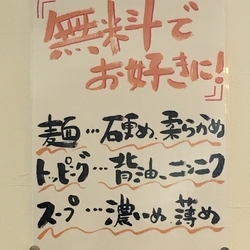 「無料で
お好きに!」
麺…硬め、柔らかめ
トッピング…背油、ニンニク
スープ…濃いめ、薄め